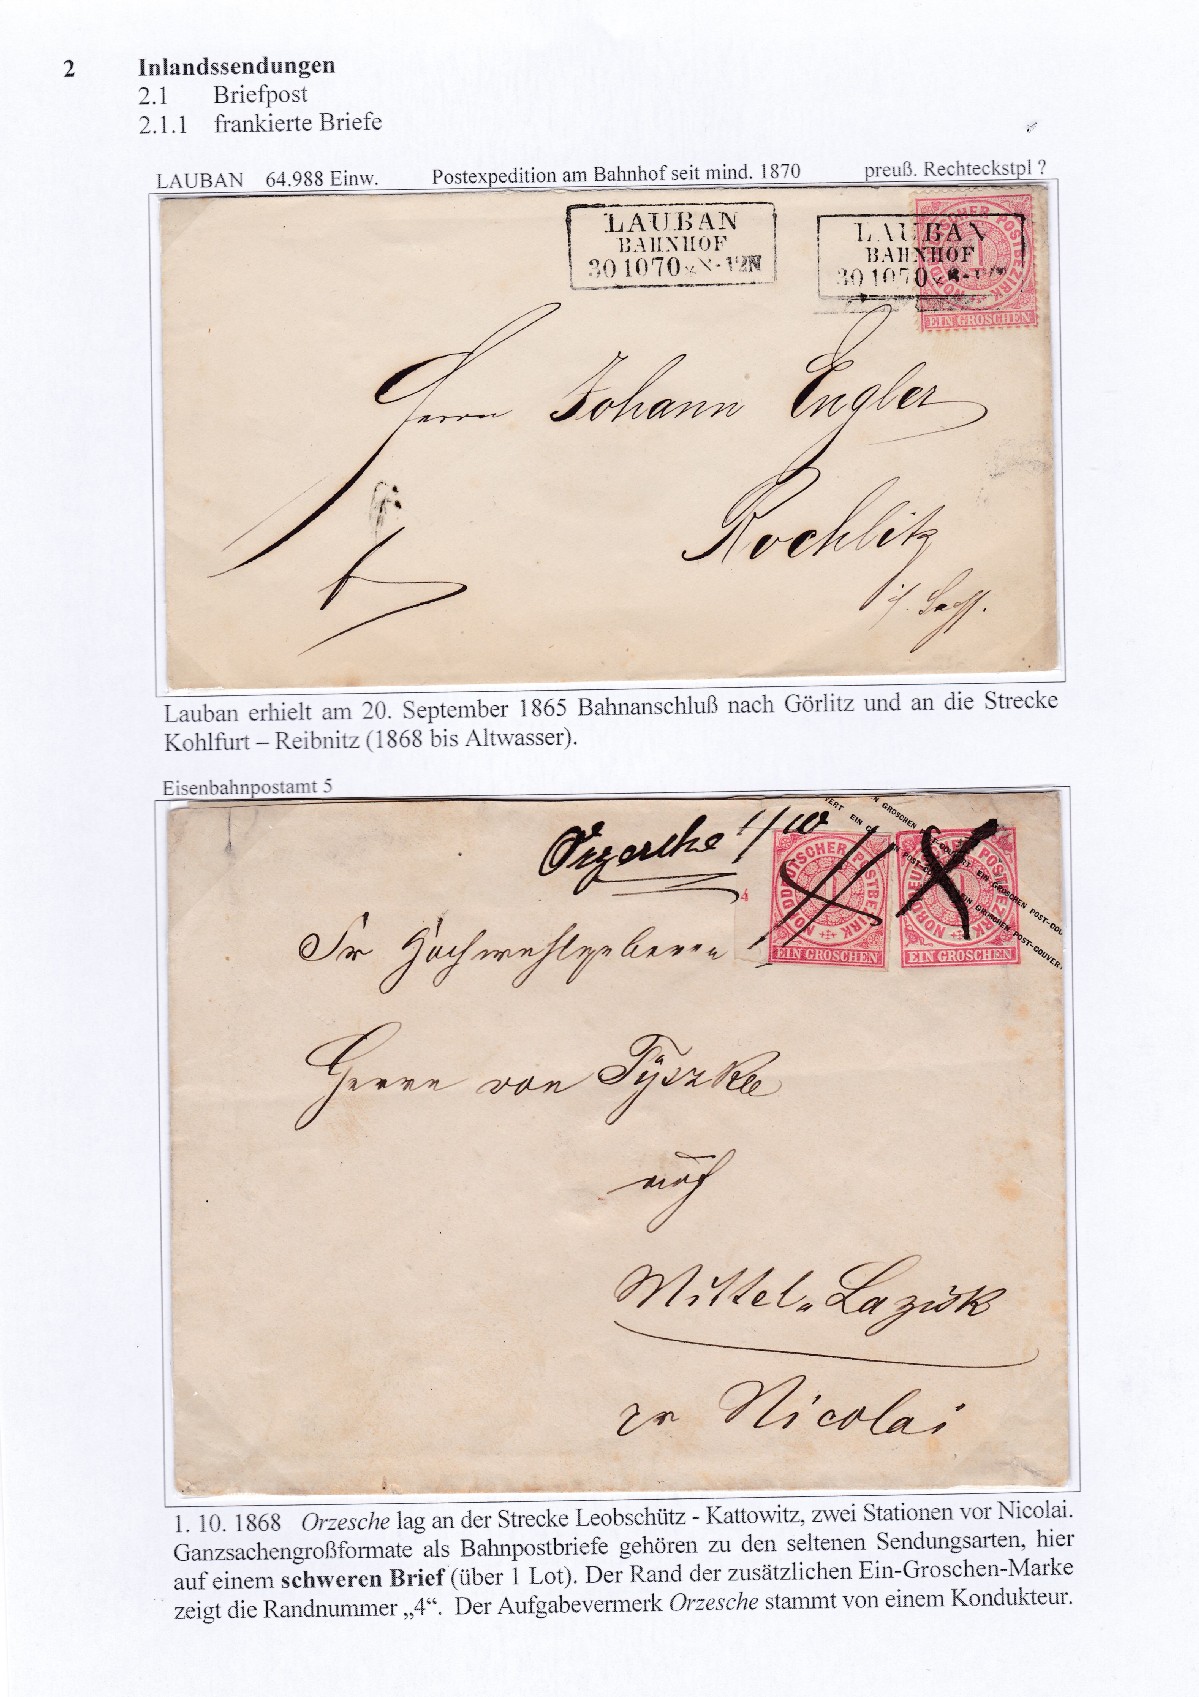 2 Inlandssendungen
2.1 Briefpost
2.1.1 frankierte Briefe
LAUBAN 64.988 Einw. Postexpedition am Bahnhof seit mind. 1870 preuß. Rechteckstpl ?
LAUBAN
BAHNHOF
30 10 70 8-12N
LAUBAN
BAHNHOF
30 10 70
NORDDEUTSCHER POSTBEZIRK
1
EIN GROSCHEN
Herrn Johann Engler
Rochlitz
i/. Sachs.
Lauban erhielt am 20. September 1865 Bahnanschluß nach Görlitz und an die Strecke
Kohlfurt – Reibnitz (1868 bis Altwasser).
Eisenbahnpostamt 5
Orzesche 1/10
4
NORDDEUTSCHER POSTBEZIRK
1
EIN GROSCHEN
NORDDEUTSCHER POSTBEZIRK
EIN GROSCHEN
EIN GROSCHEN POST-COUVERT
Sr Hochwohlgeboren
Herrn von Tyszka
auf
Mittel-Lazisk
zu Nicolai
1. 10. 1868 Orzesche lag an der Strecke Leobschütz - Kattowitz, zwei Stationen vor Nicolai.
Ganzsachengroßformate als Bahnpostbriefe gehören zu den seltenen Sendungsarten, hier
auf einem schweren Brief (über 1 Lot). Der Rand der zusätzlichen Ein-Groschen-Marke
zeigt die Randnummer „4“. Der Aufgabevermerk Orzesche stammt von einem Kondukteur.